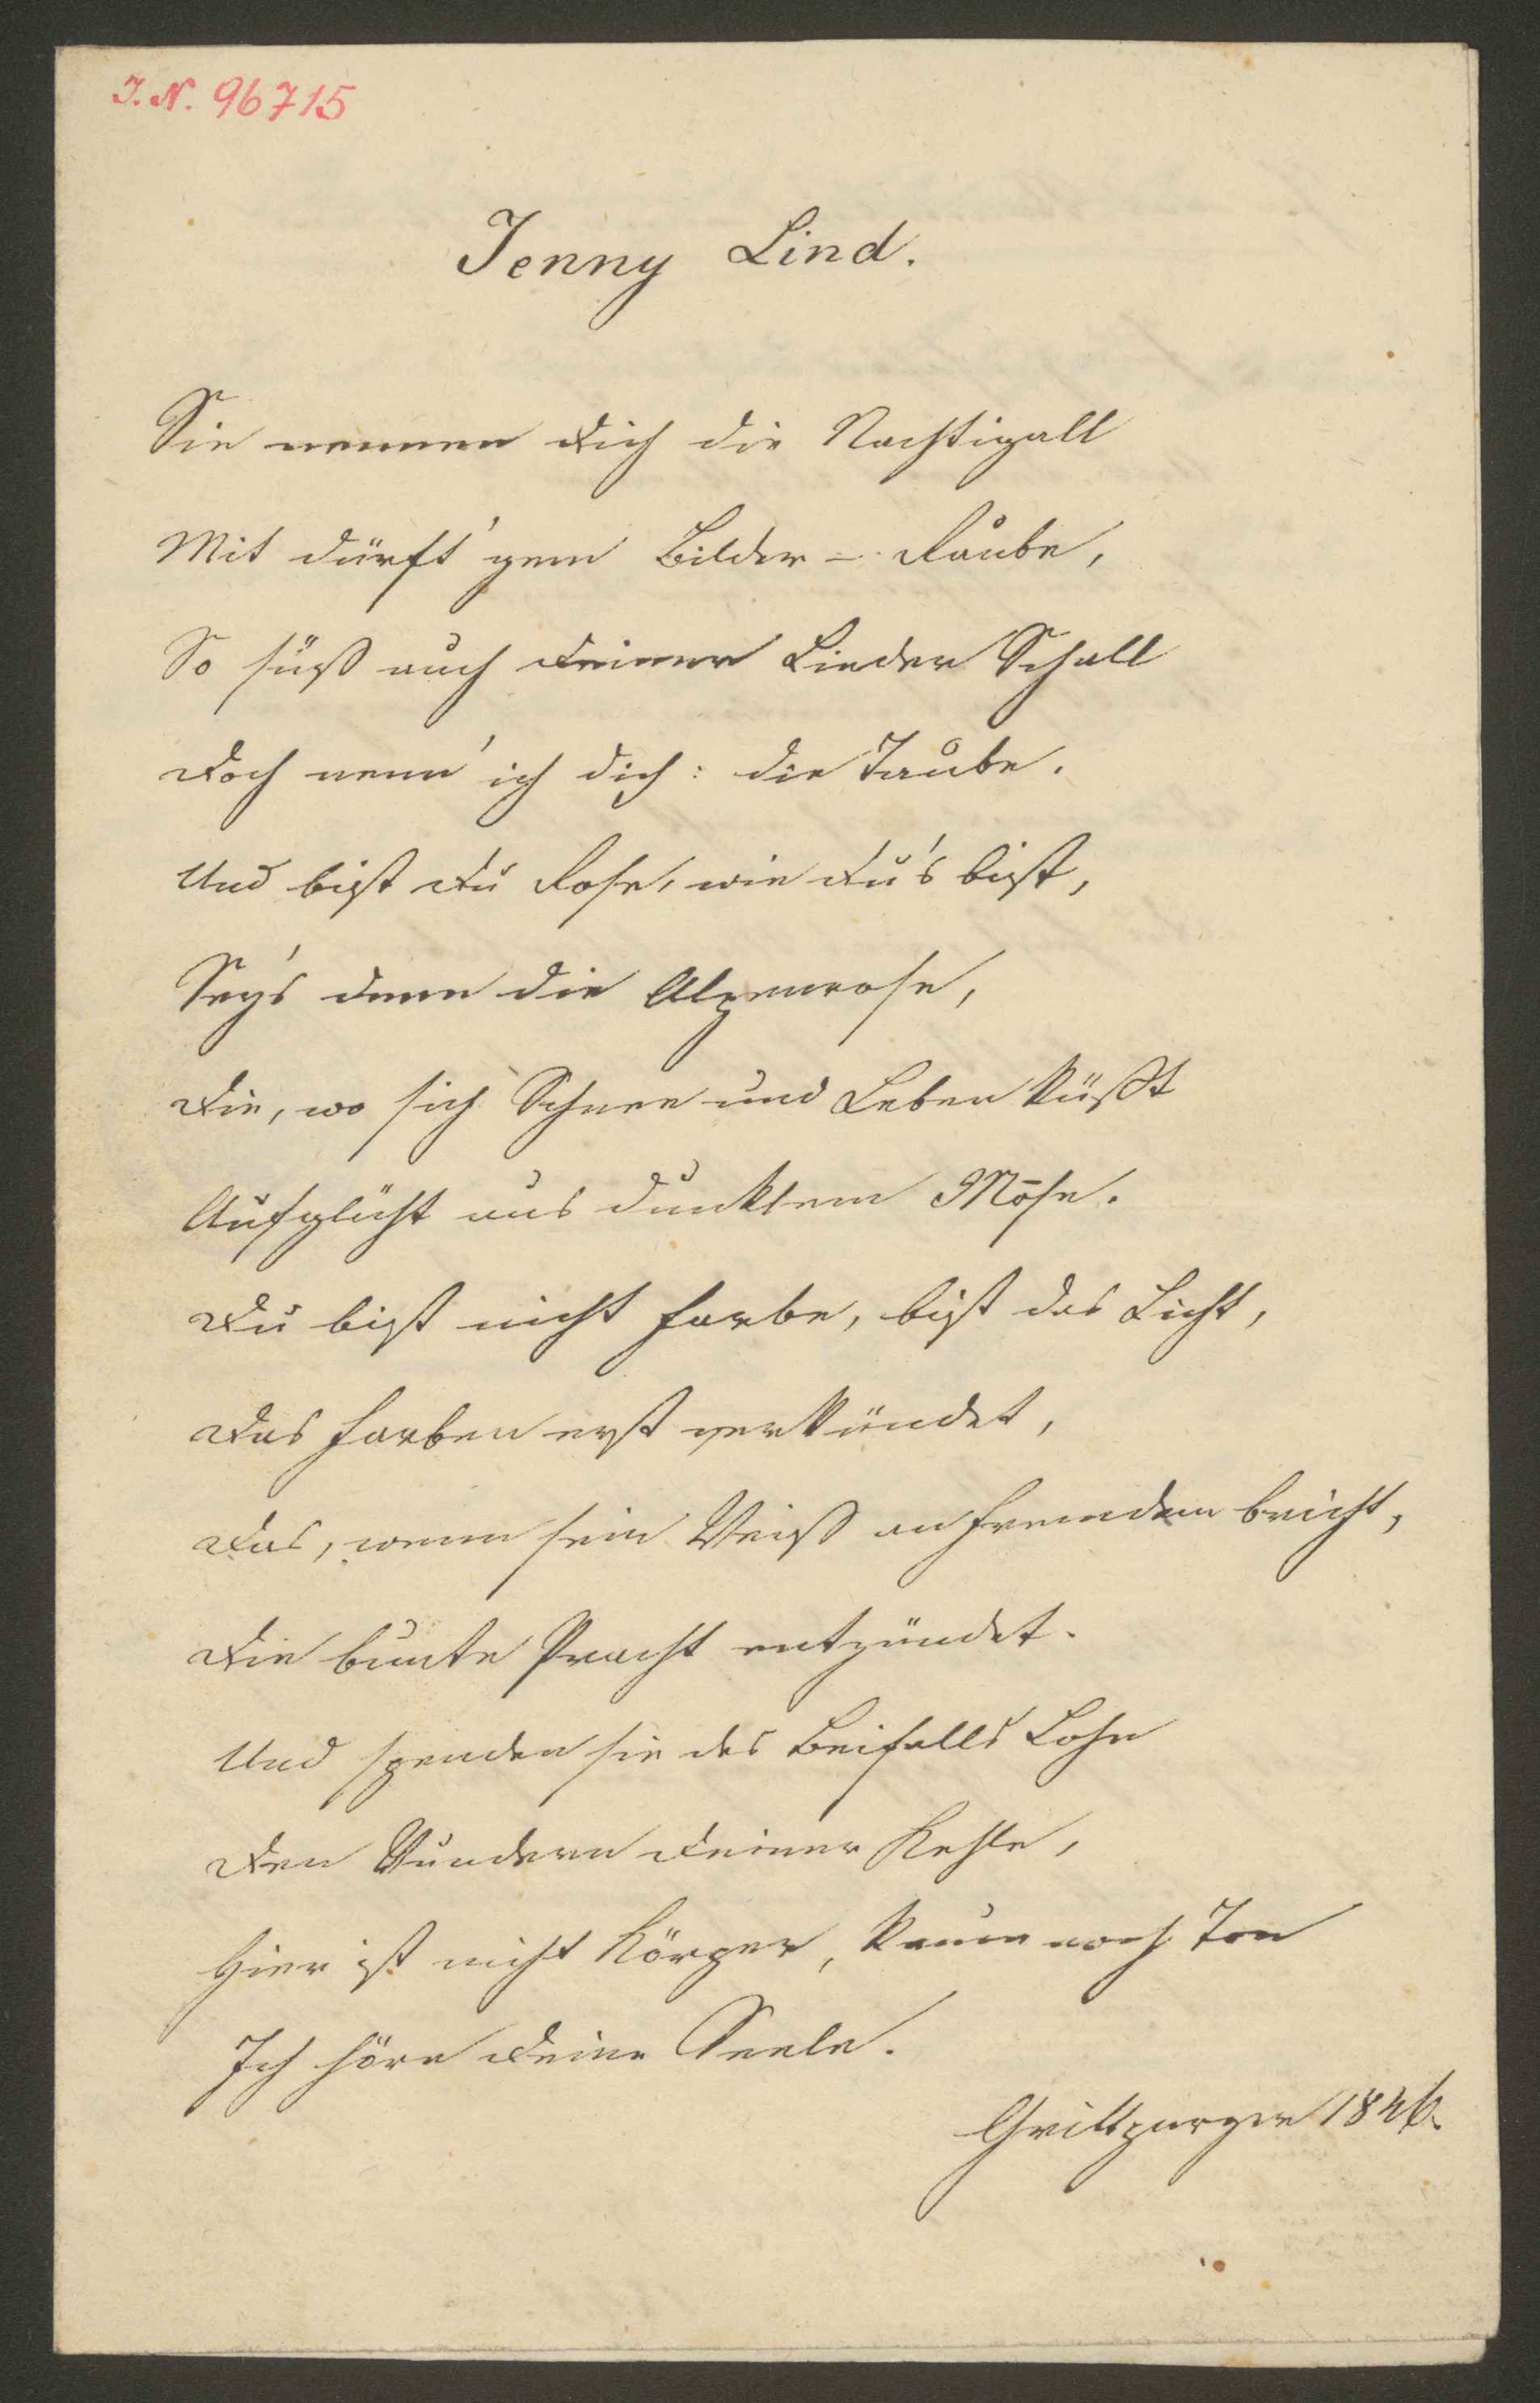 J. N. 96715
Jenny Lind.
Sie nennen Dich die Nachtigall
Mit dürft'gem Bilder-Raube,
So süß auch Deiner Lieder Schall
Doch nenn' ich dich: die Taube.
Und bist Du Rose, wie Du's bist,
Sey's denn die Alpenrose,
Die, wo sich Schnee und Leben küßt
Aufglüht aus dunklem Mose.
Du bist nicht Farbe, bist das Licht,
Das Farben erst verkündet,
Das, wenn sein Weiß an Fremdem bricht,
Die bunte Pracht entzündet.
Und spenden sie des Beifalls Lohn
Den Wundern Deiner Kehle,
Hier ist nicht Körper, kaum noch Ton
Ich höre Deine Seele.
Grillparzer 1846.